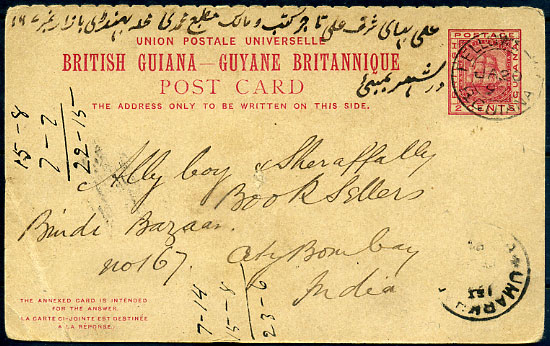 علی بھای شرف علی تاجر کتب و مالک مطبع محمدی محلہ بھنڈی بازار نمبر ۱۶۷
در شہر بمبئی
UNION POSTALE UNIVERSELLE
BRITISH GUIANA—GUYANE BRITANNIQUE
POST CARD
THE ADDRESS ONLY TO BE WRITTEN ON THIS SIDE.
POSTAGE
2 CENTS
15-8
7-7
22-15
Ally boy & Sheraffally
Book Sellers
Bindi Bazaar
no 167.
City Bombay
India
7-14
15-8
23-6
UMARK
THE ANNEXED CARD IS INTENDED
FOR THE ANSWER.
LA CARTE CI-JOINTE EST DESTINÉE
A LA REPONSE.